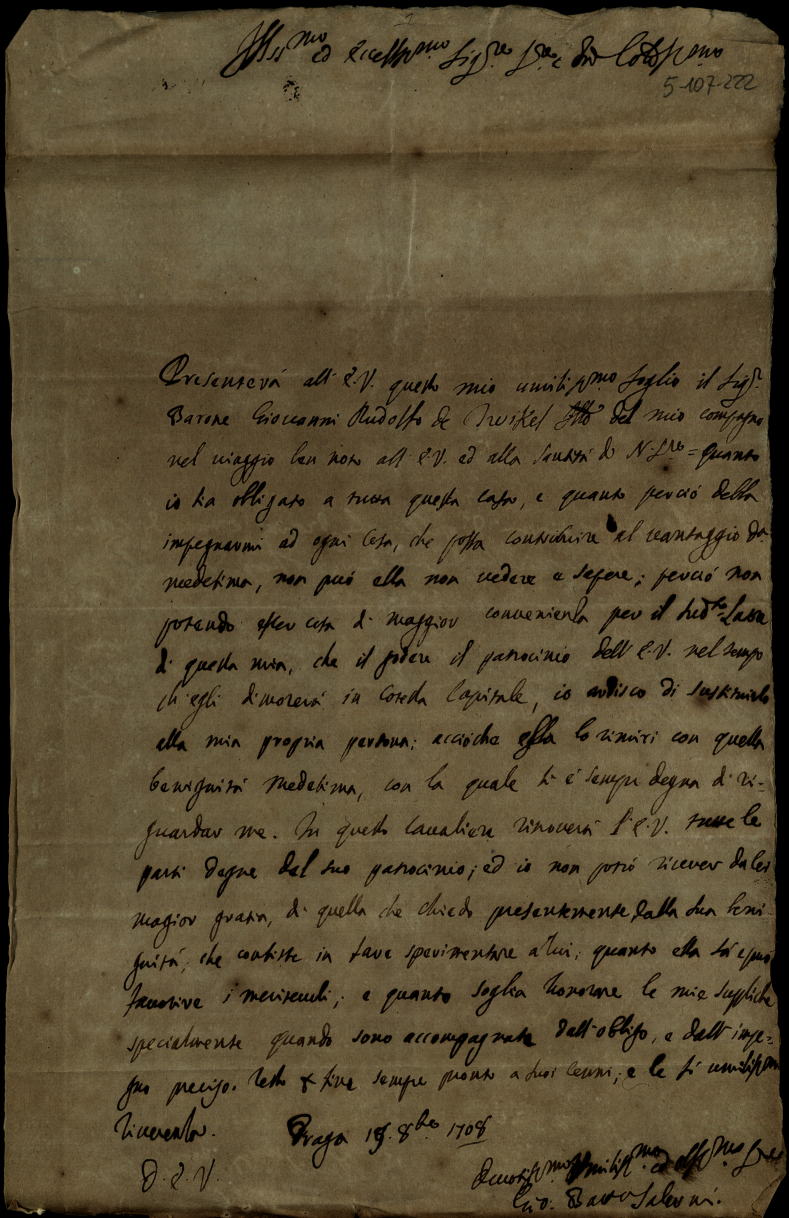 Ill.mo ed Eccell.mo Sig.re Sig.re e
5-107-222
Presenterà all' E.V. questo mio umiliss.mo foglio il Sig.r
Barone Giovanni Rudolfo de del mio compagno
nel viaggio ben noto all' E.V. ed alla Santità di N. S.re = quanto
io sia obligato a tutta questa casa, e quanto perciò debba
impegnarmi ad ogni cosa, che possa contribuire al vantaggio da
medesima, non può ella non vedere e sapere; perciò non
potendo esser cosa di maggior convenienza per il sud.to
di questa mia, che il godere il patrocinio dell' E.V. nel tempo
ch'egli dimorerà in cotesta Capitale, io ardisco di sustituirlo
alla mia propria persona; acciòche essa lo rimiri con quella
benignità medesima, con la quale si è sempre degna di ri-
guardar me. In questo Cavaliere ritroverà l'E.V. tutte le
parti degne del suo patrocinio; ed io non potrò ricever da lei
magior gratia, di quella che chiedo presentemente dalla sua beni-
gnità, che consiste in fare sperimentare a lui, quanto ella sà e può
favorire i; e quanto soglia honorare le mie suppliche
specialmente quando sono accompagnate dall'obligo, e dall'impe=
gno preciso. Resto sempre pronto a suoi cenni; e le fò umiliss.ma
riverenza. Praga 19. 8bre 1708
D. E. V.
Devotiss.mo Umiliss.mo ed obl.mo
Gio. Batt.a Salerni.